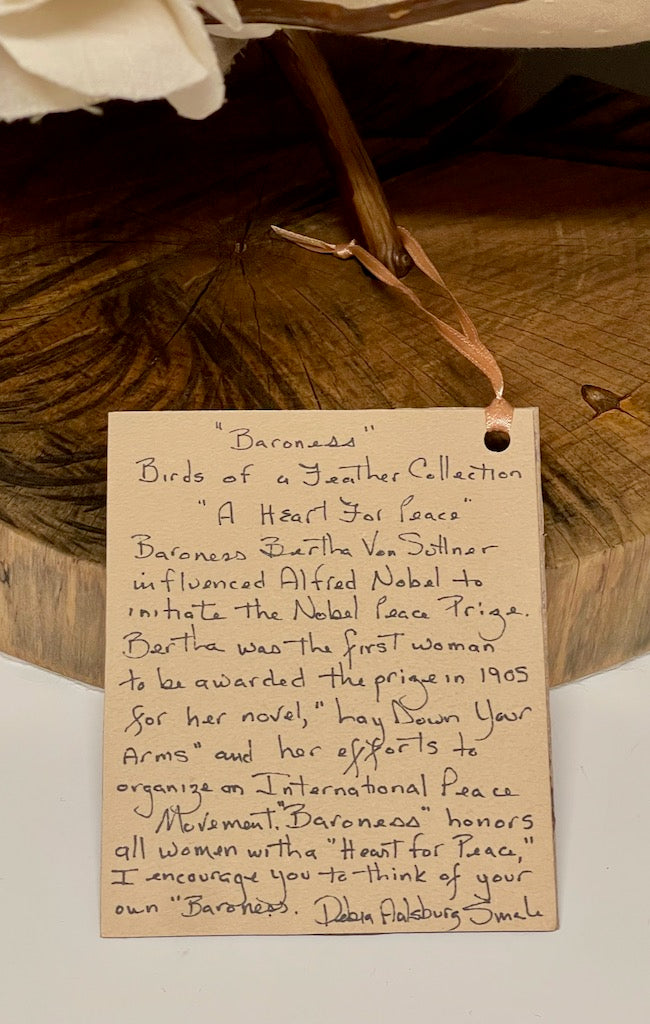 "Baroness"
Birds of a Feather Collection
"A Heart For Peace"
Baroness Bertha Von Suttner
influenced Alfred Nobel to
initiate the Nobel Peace Prize.
Bertha was the first woman
to be awarded the prize in 1905
for her novel, "Lay Down Your
Arms" and her efforts to
organize an International Peace
Movement. "Baroness" honors
all women with a "Heart for Peace,"
I encourage you to think of your
own "Baroness. Debra Aalsburg Smale